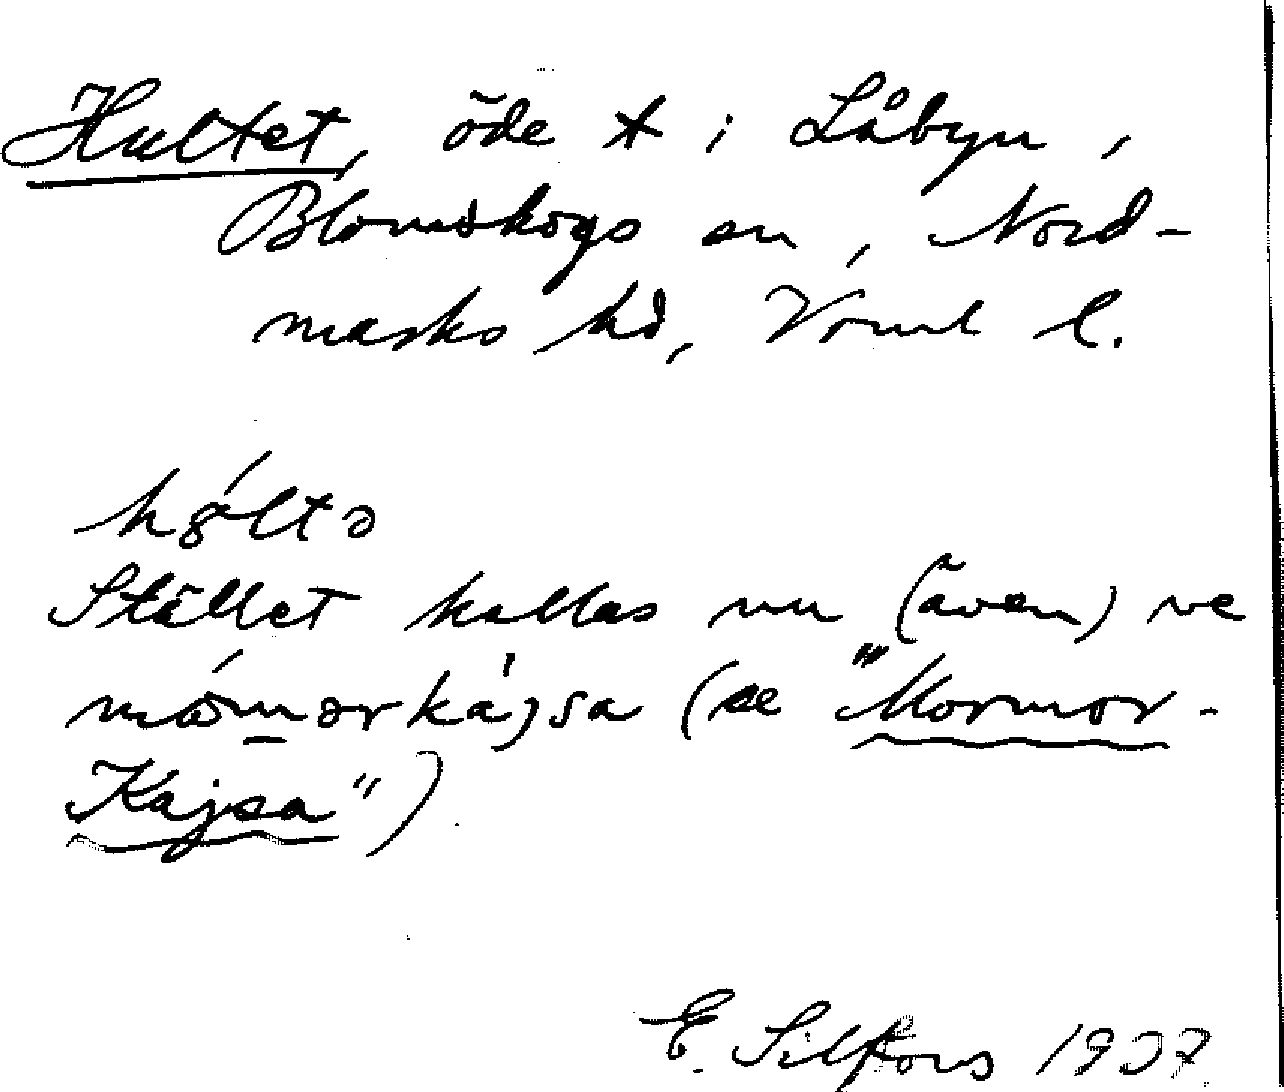 Hultet, öde t i Låbyn,
Blomskogs sn, Nord-
marks hd, Värml l.
hó̤ltə
Stället kallas nu (även) ve
mómorkájsa (se "Mormor-
Kajsa")
E. Silfors 1937.